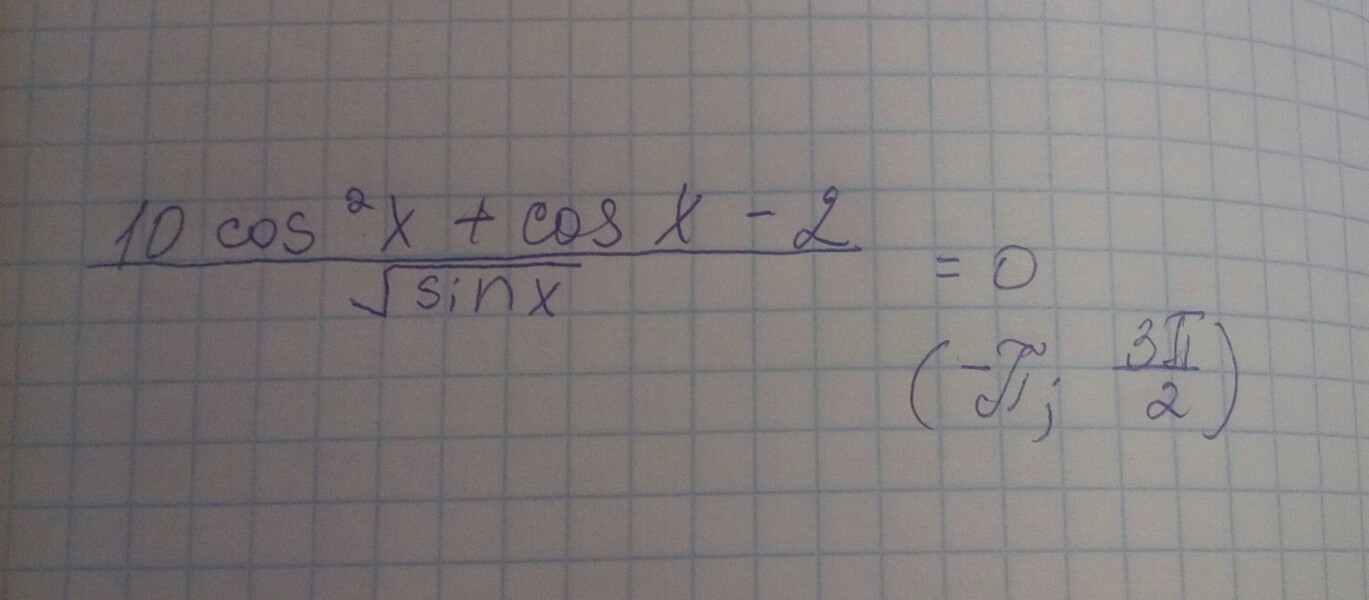 10 cos²x + cos x - 2
√sinx
= 0
(-π; 3π/2)